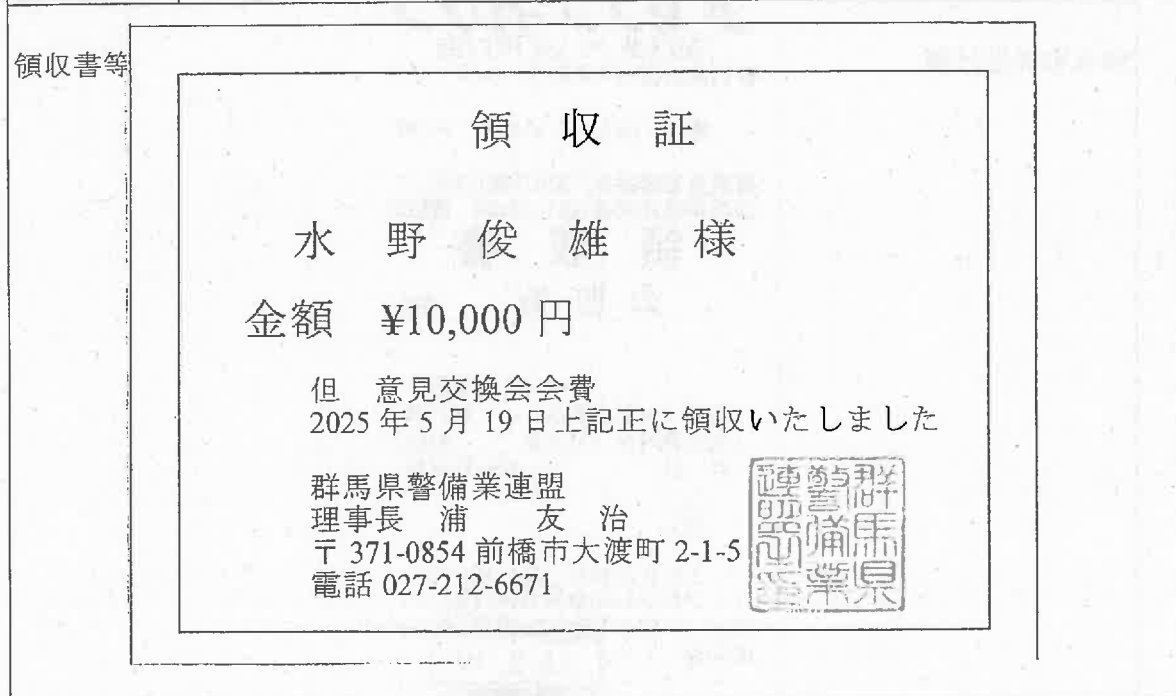 領収書等
領 収 証
水 野 俊 雄 様
金額 ¥10,000 円
但 意見交換会会費
2025 年 5 月 19 日上記正に領収いたしました
群馬県警備業連盟
理事長 浦 友 治
〒 371-0854 前橋市大渡町 2-1-5
電話 027-212-6671
群馬県
警備業
連盟之